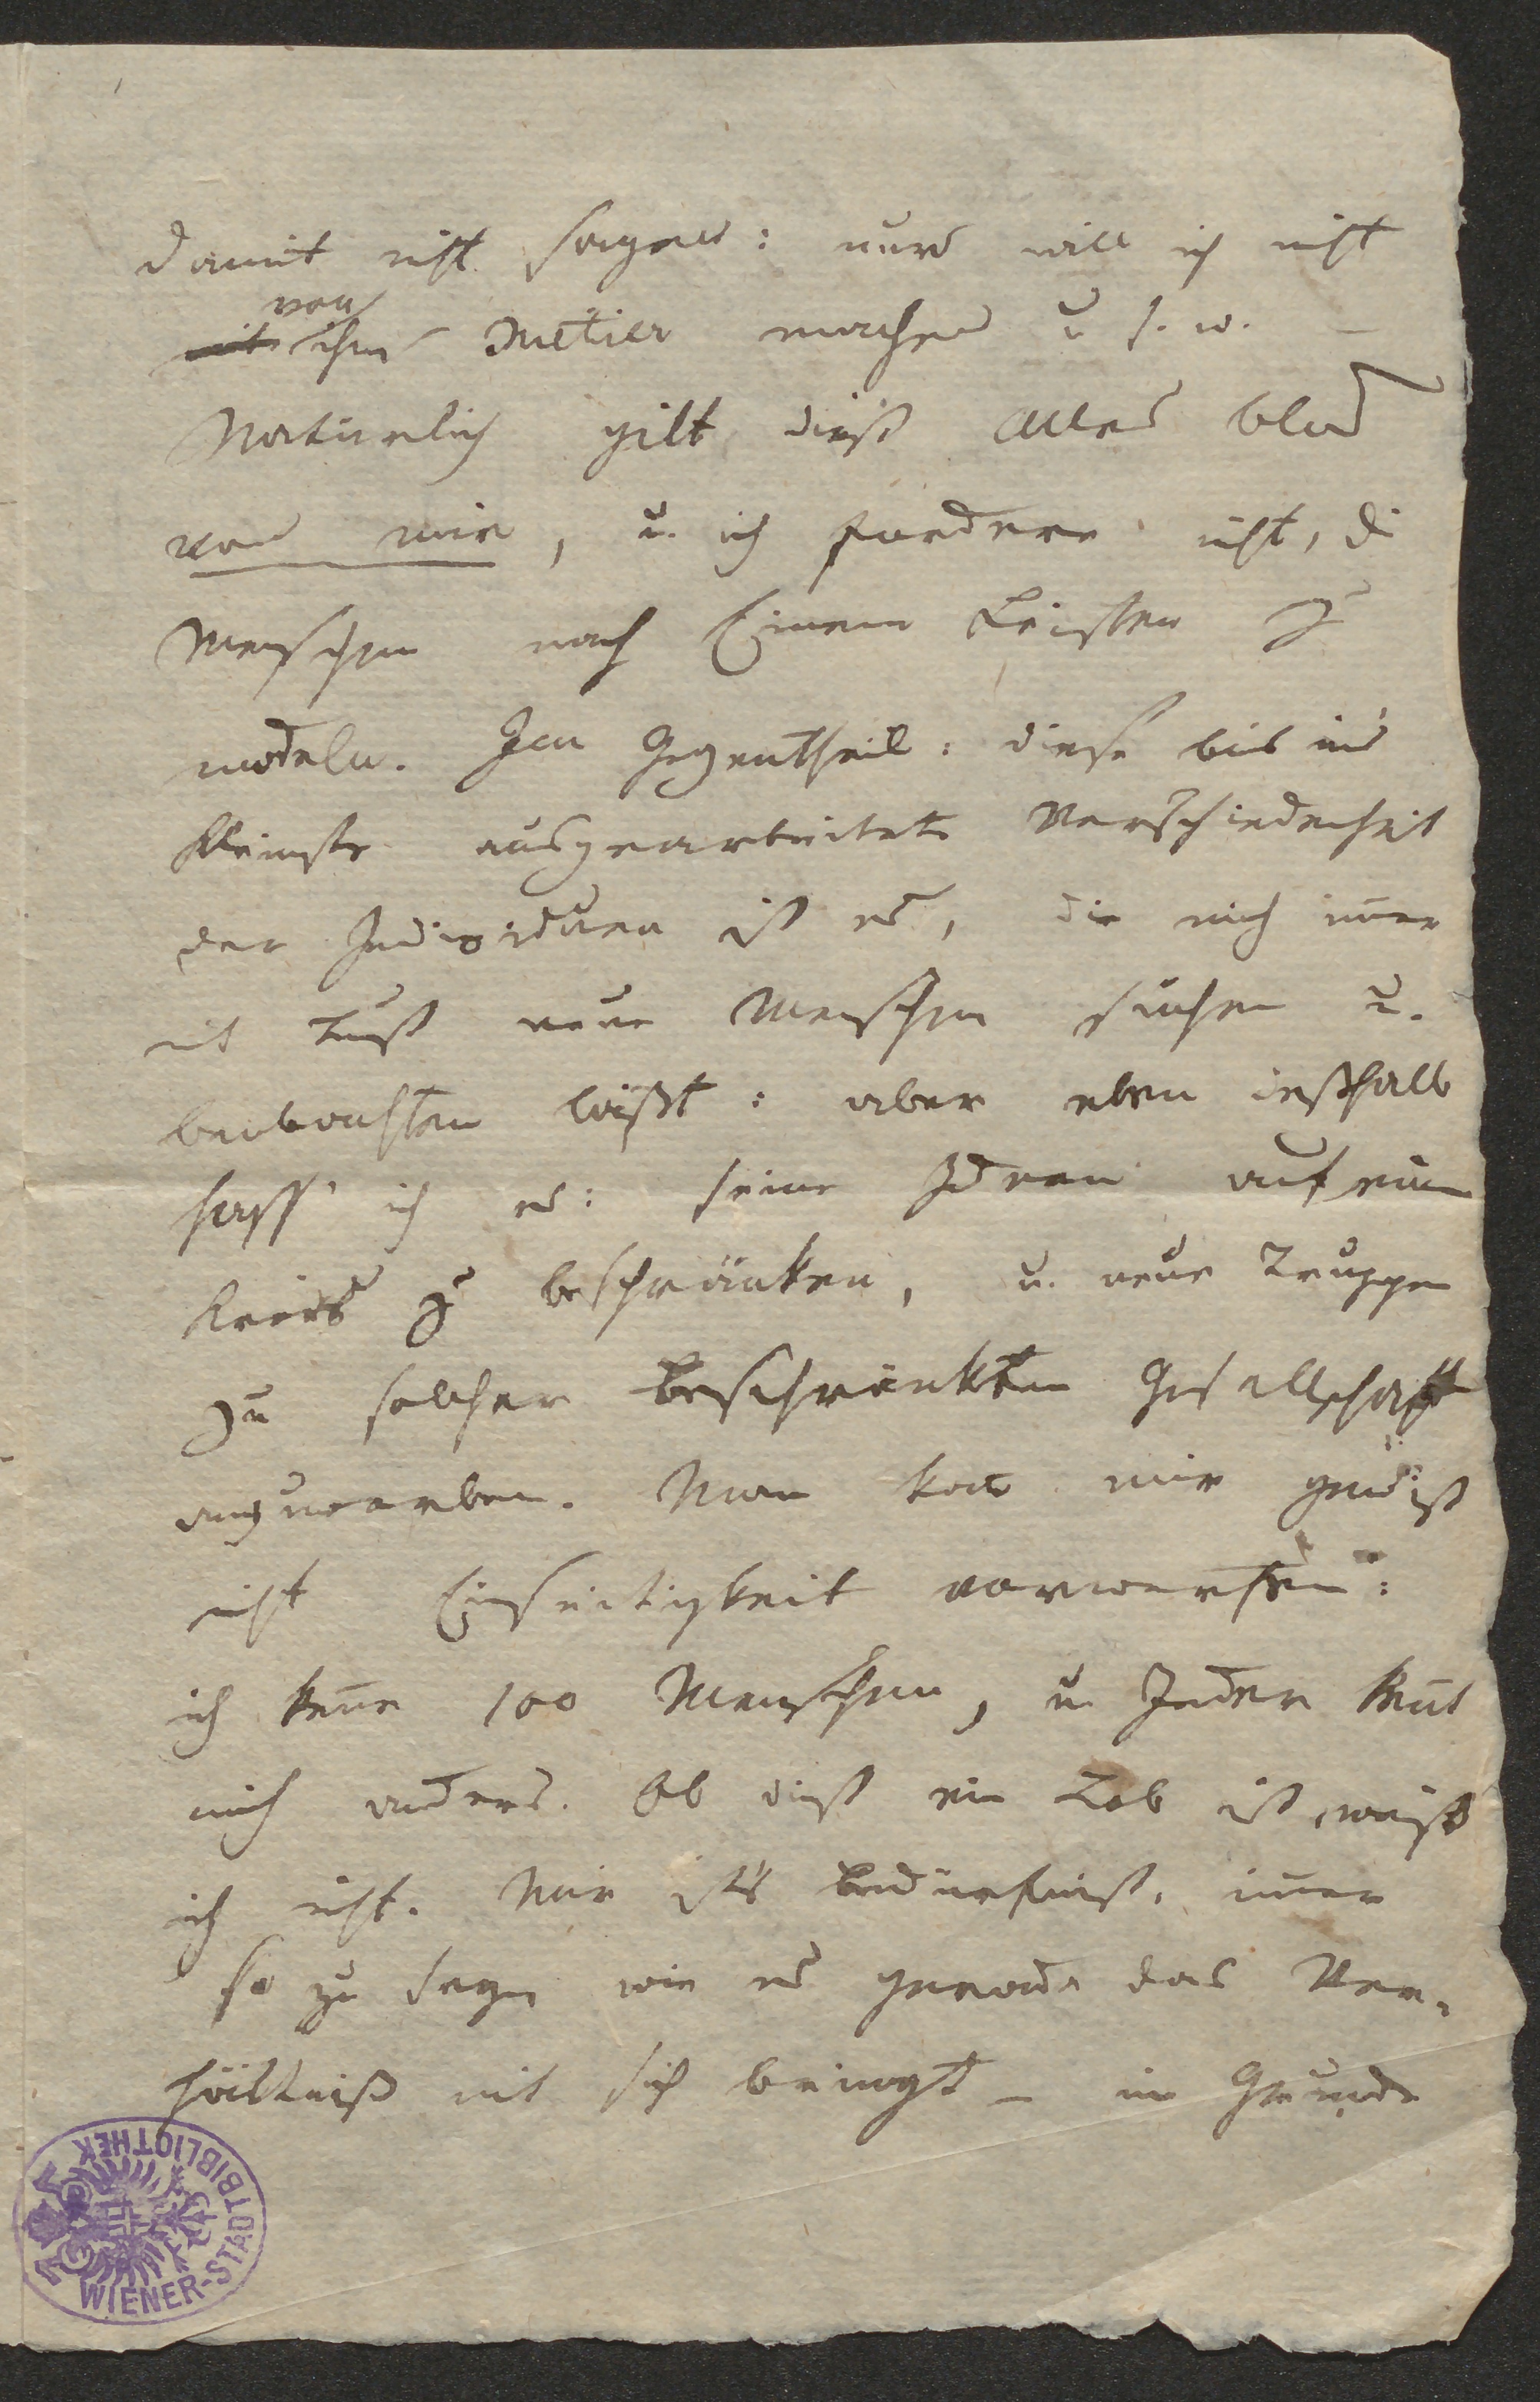 damit nicht sagen: nur will ich nicht
von
mit ihm Metier machen u s. w. –
Natürlich gilt dieß Alles blos
von mir, u. ich fordere nicht, die
Menschen nach Einem Leisten zu
modeln. Im Gegentheil: diese bis ins
Kleinste ausgearbeitete Verschiedenheit
der Individuen ist es, die mich im̄er
mit Lust neue Menschen suchen u.
beobachten läßt: aber eben deßhalb
hass' ich es: seine Ideen auf einen
Kreis zu beschränken, u. neue Truppen
zu solcher beschränkten Gesellschaft
anzuwerben. Man kan̄ mir gewiß
nicht Einseitigkeit vorwerfen:
ich ken̄e 100 Menschen, u. Jeder ken̄t
mich anders. Ob dieß ein Lob ist, weiß
ich nicht. Mir ists Bedürfniß, im̄er
so zu seyn wie es gerade das Ver-
hältniß mit sich bringt – im Grunde
WIENER-STADTBIBLIOTHEK